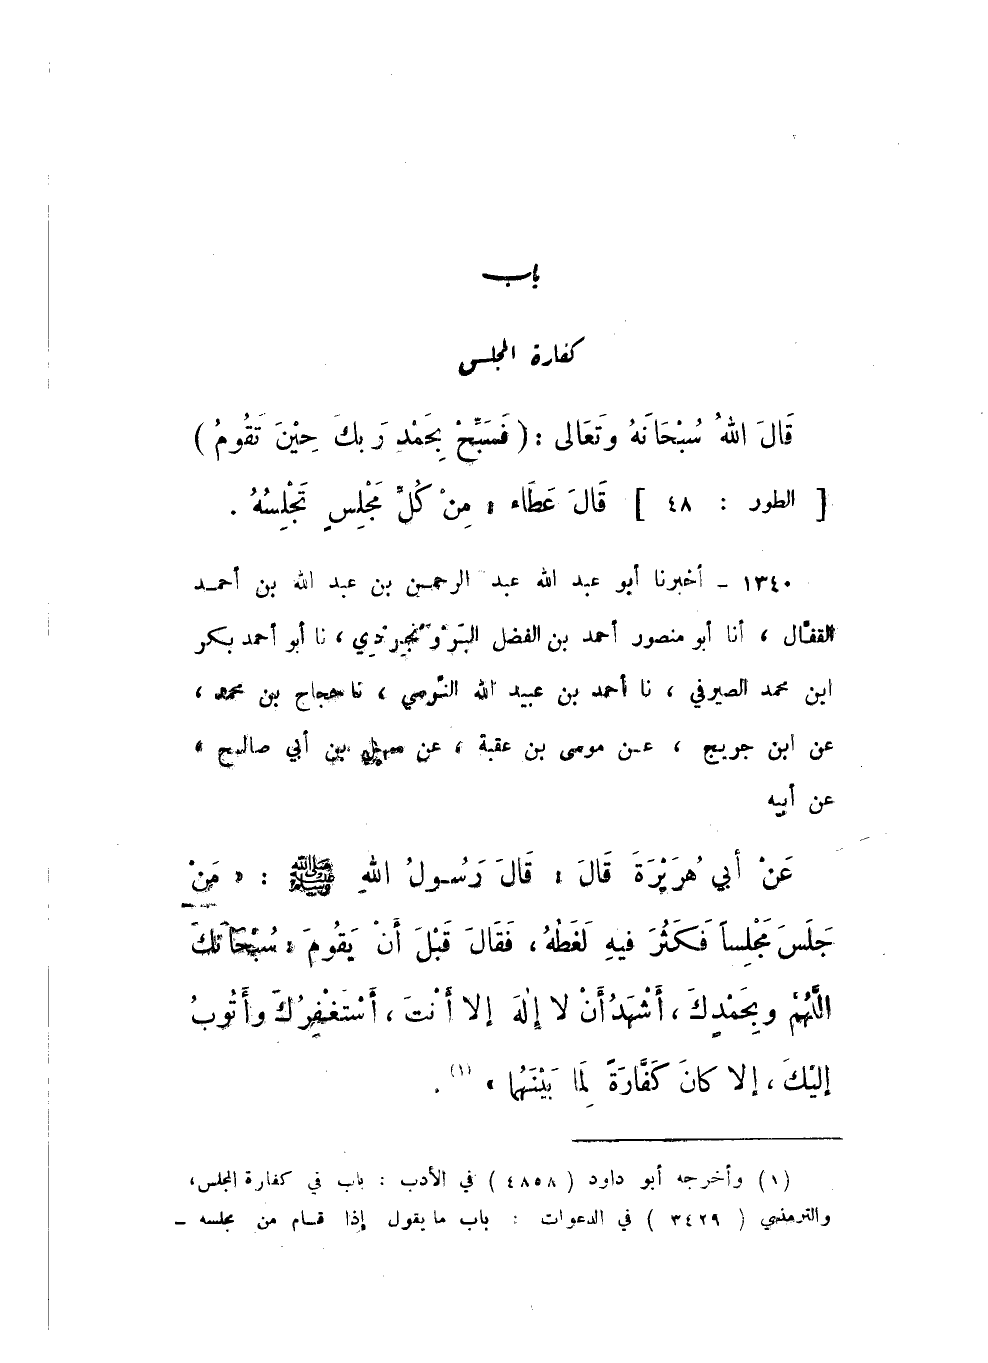 باب
كفارة المجلس
قَالَ اللهُ سُبْحَانَهُ وَتَعَالى : ( فَسَبِّحْ بِحَمْدِ رَبِّكَ حِيْنَ تَقُومُ )
[ الطور : ٤٨ ] قَالَ عَطَاء : مِنْ كُلِّ مَجْلِسٍ تَجْلِسُهُ .
١٣٤٠ – أخبرنا أبو عبد الله عبد الرحمن بن عبد الله بن أحمد
القفَّال ، أنا أبو منصور أحمد بن الفضل البَرْوَنْجِرْدِي ، نا أبو أحمد بكر
ابن محمد الصيرفي ، نا أحمد بن عبيد الله النَّرسي ، نا حجاج بن محمد ،
عن ابن جريج ، عن موسى بن عقبة ، عن سهيل بن أبي صالح ،
عن أبيه
عَنْ أبي هُرَيْرَةَ قَالَ : قَالَ رَسُولُ اللهِ ﷺ : « مَنْ
جَلَسَ مَجْلِساً فَكَثُرَ فيهِ لَغَطُهُ ، فَقَالَ قَبْلَ أَنْ يَقُومَ : سُبْحَانَكَ
اللَّهُمَّ وبِحَمْدِكَ ، أَشْهَدُ أَنْ لا إِلهَ إلا أَنْتَ ، أَسْتَغْفِرُكَ وأَتُوبُ
إليْكَ ، إلا كانَ كَفَّارَةً لِمَا بَيْنَهُما » (١) .
(١) وأخرجه أبو داود ( ٤٨٥٨ ) في الأدب : باب في كفارة المجلس ،
والترمذي ( ٣٤٢٩ ) في الدعوات : باب ما يقول إذا قام من مجلسه –